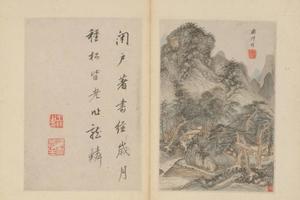 閉戶著書經歲月
種松皆老龍鱗